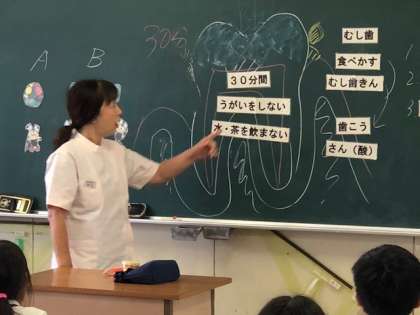 A
B
30分
30分間
うがいをしない
水・茶を飲まない
むし歯
食べかす
むし歯きん
歯こう
さん（酸）